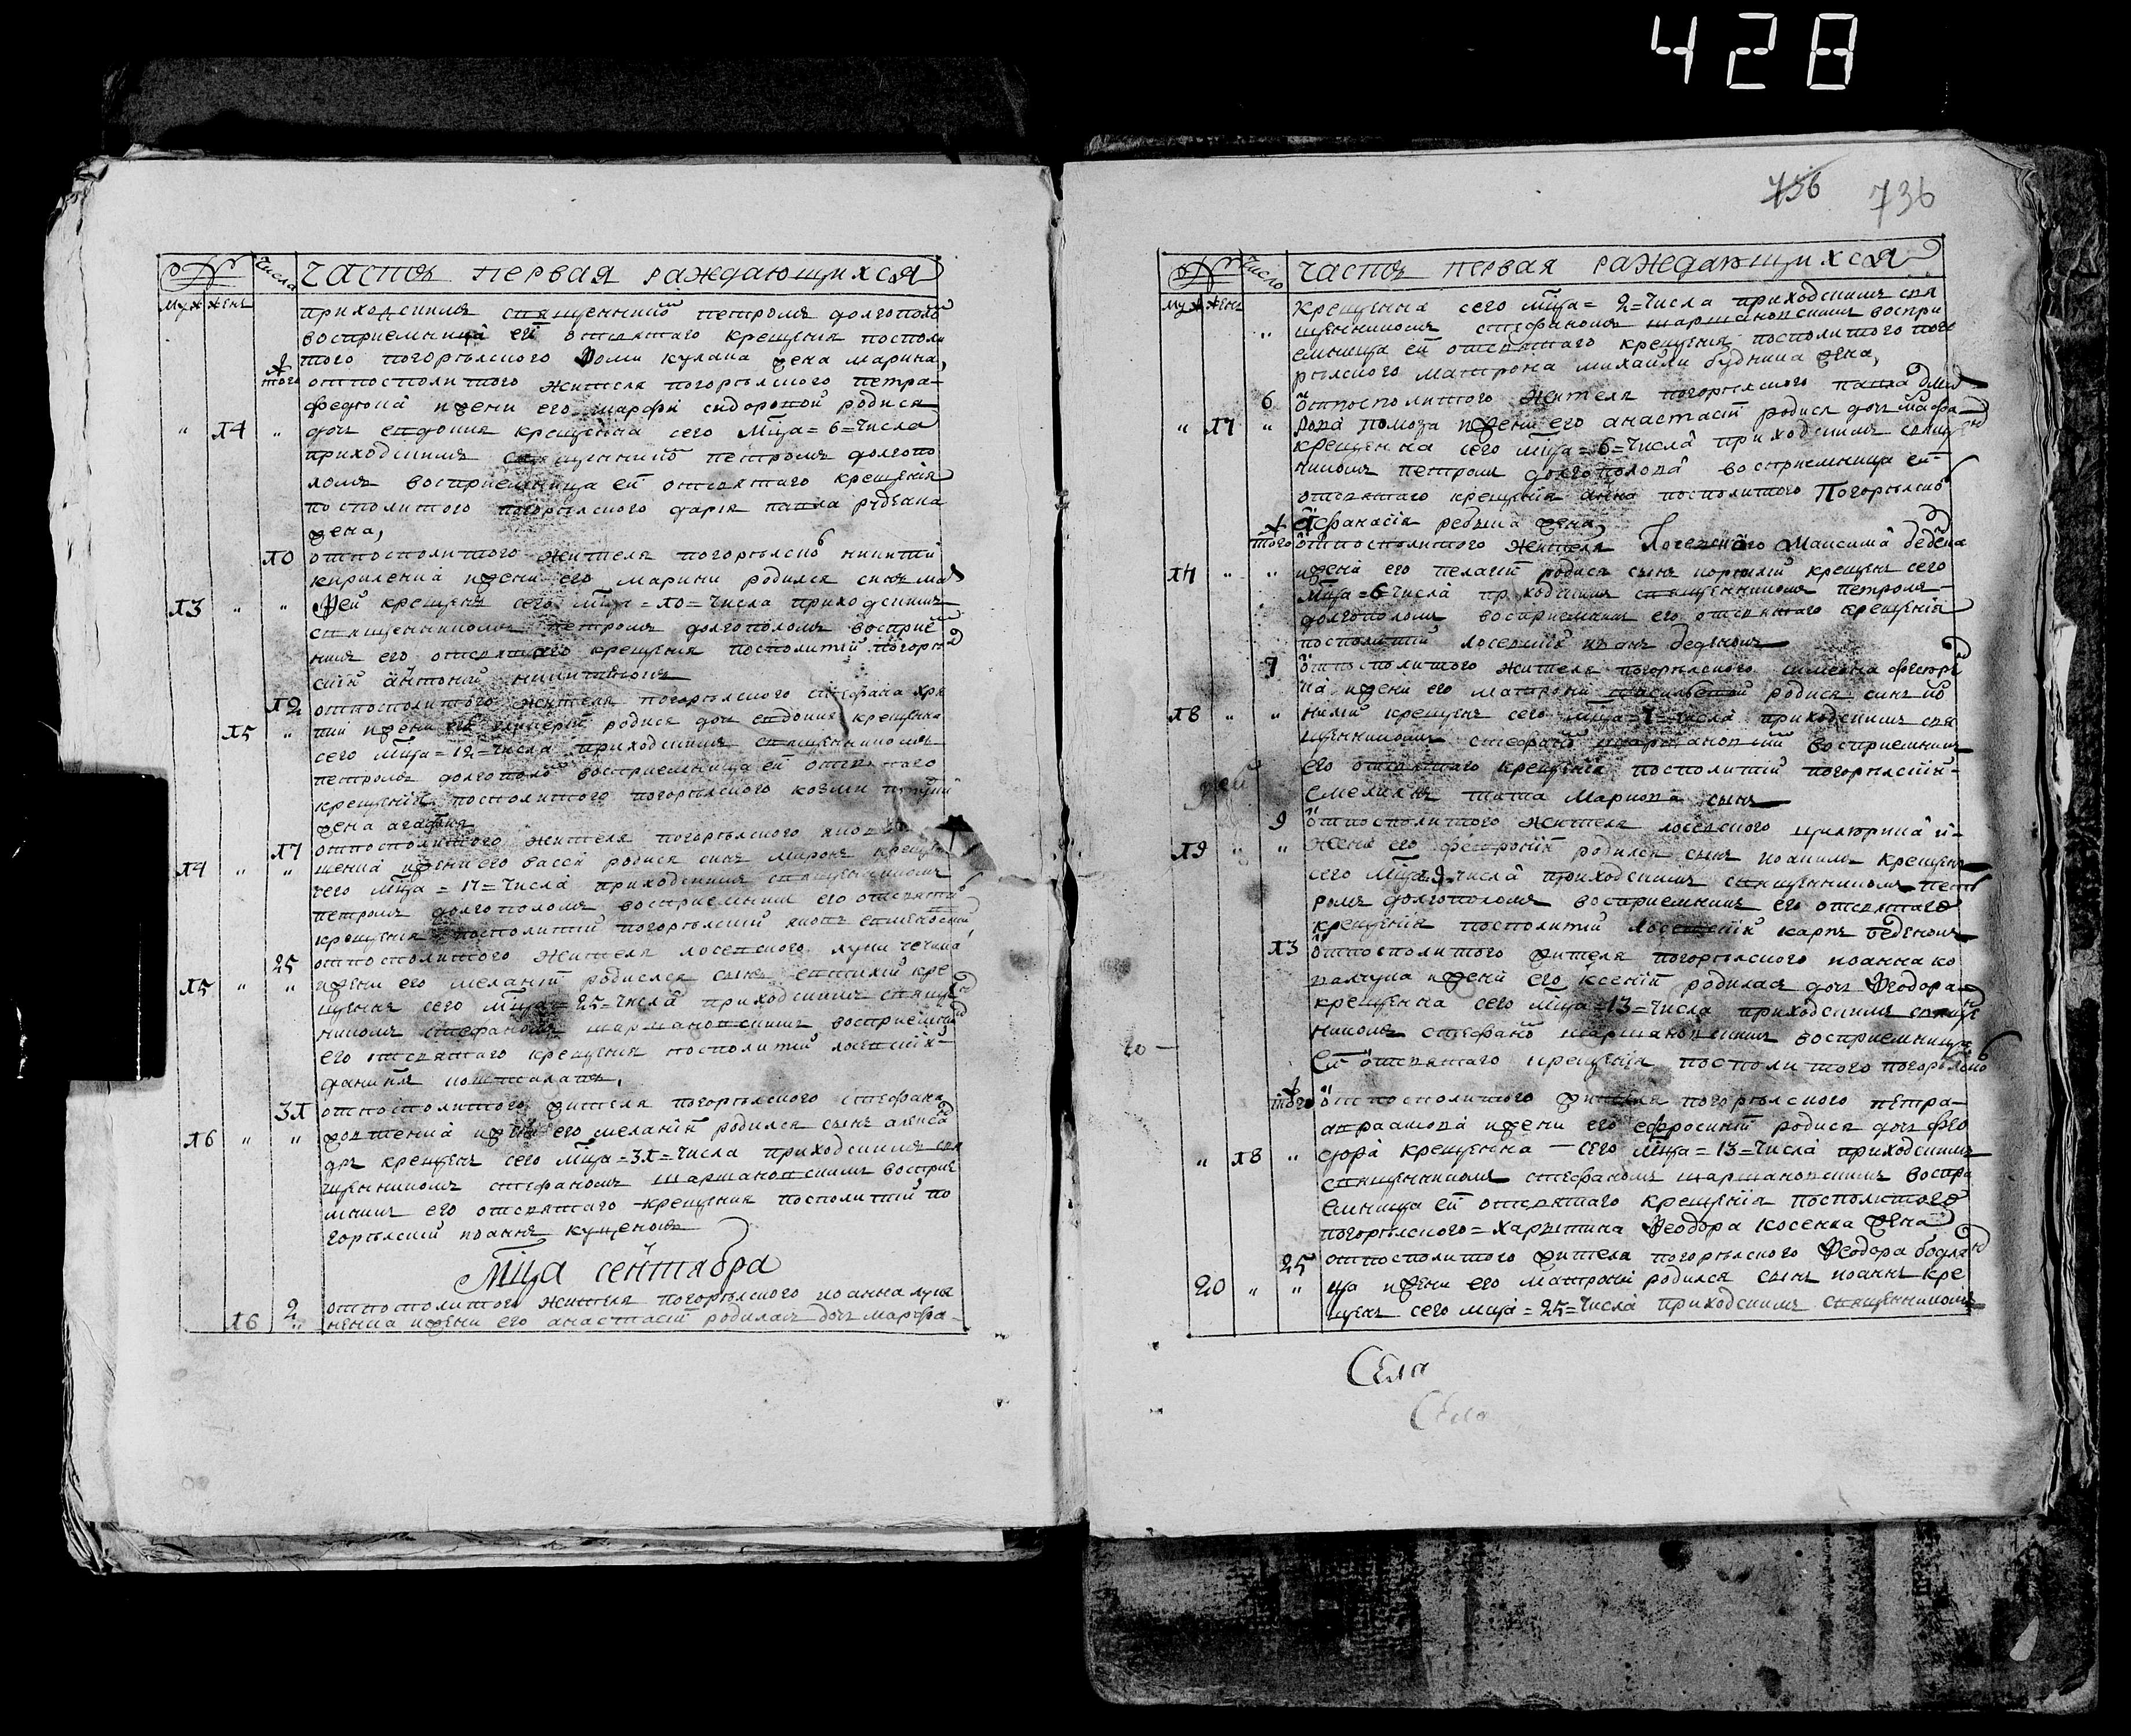 428
736 736
№ Числа Часть первая раждающихся
муж жен
приходскимъ священникй петромъ долгополо
восприемница ей отсвятаго крещения посполи
того погорѣлского Ѳоми кулака жена марина,
того отпосполитого жителя погорѣлского петра
федюна ижени его марфи сидоровой родися
" 14 " дочъ евдокия крещенна сего мца = 6 = числа
приходскимъ священникй петромъ долгопо
ломъ восприемница ей отсвятаго крещения
посполитого погорѣлского дария павла
жена,
10 отпосполитого жителя погорѣлско никити
кириленка ижени его марини родился синъ ма
13 " " Ѳей крещенъ сего мца = 10 = числа приходскимъ
священникомъ петромъ долгополомъ восприе
никъ его отсвятаго крещения посполитий погорѣ
скій антоний
12 отпосполитого жителя погорѣлского стефана
15 " ижени его родися дочъ евдокия крещенна
сего мца = 12 = числа приходскимъ священникомъ
петромъ долгополо восприемница ей отсвятаго
крещения посполитого погорѣлского козми
жена агафия
17 отпосполитого жителя погорѣлского
14 " " ижени его васси родися синъ миронъ крещенъ
сего мца = 17 = числа приходскимъ священникомъ
петромъ долгополомъ восприемникъ его отсвято
крещения посполитий погорѣлский яковъ
25 отпосполитого жителя лосевского луки чечика
15 " " ижени его меланій родился синъ евтихий кре
щенъ сего мца = 25 = числа приходскимъ священ
никомъ стефаномъ шармановскимъ восприемни
его отсвятаго крещения посполитий лосевский
данила
31 отпосполитого жителя погорѣлского стефана
16 " " ижени его меланій родился синъ алекса
дръ крещенъ сего мца = 31 = числа приходскимъ свя
щенникомъ стефаномъ шармановскимъ восприе
мникъ его отсвятаго крещения посполитий по
горѣлский иоаннъ куценокъ
Мца сентября
2 отпосполитого жителя погорѣлского иоанна луки
16 " ненка ижени его анастасій родилась дочъ марфа
№ Число Часть первая раждающихся
муж жен
крещенна сего мца = 2 = числа приходскимъ свя
" щенникомъ стефаномъ шармановскимъ воспри
емница ей отсвятаго крещения посполитого пого
рѣлского матрона михайли будника жена,
6 отпосполитого жителя погорѣлского павла
" 17 " помоза ижени его анастасій родися дочъ мафа
крещенна сего мца = 6 = числа приходскимъ священ
никомъ петромъ долгополова восприемница ей
отсвятаго крещения анна посполитого Погорѣлско
афанасія жена,
того отпосполитого жителя Лосевского Максима беденка
17 " " ижени его пелагій родися синъ корнилій крещенъ сего
мца = 6 = числа приходскимъ священникомъ петромъ
долгополомъ восприемникъ его отсвятаго крещения
посполитий лосевский иванъ беденокъ
7 отпосполитого жителя погорѣлского симеона
ижени его матрони родися синъ ко
18 " " нилій крещенъ сего мца = 7 = числа приходскимъ свя
щенникомъ стефано шармановский восприемникъ
его отсвятаго крещения посполитий погорѣлский
Емелиянъ шата Маркова синъ
9 отпосполитого жителя лосевского и
19 " " жени его февроній родился синъ иоакимъ крещенъ
сего мца 9 числа приходскимъ священникомъ пет
ромъ долгополомъ восприемникъ его отсвятаго
крещения посполитий лосевский карпъ беденокъ
13 отпосполитого жителя погорѣлского иоанна ко
валчука ижени его ксеній родилася дочъ Ѳеодора
крещенна сего мца = 13 = числа приходскимъ священ
никомъ стефано шармановскимъ восприемница
ей отсвятаго крещения посполитого погорѣлско
того отпосполитого жителя погорѣлского петра
авраамова ижени его ефросиній родися дочъ фео
" 18 " дора крещенна — сего мца = 13 = числа приходскимъ
священникомъ стефаномъ шармановскимъ воспри
емница ей отсвятаго крещения посполитого
погорѣлского = харитина Ѳеодора косенка жена
25 отпосполитого жителя погорѣлского Ѳеодора
20 " " ца ижени его матрони родился синъ иоаннъ кре
щенъ сего мца = 25 = числа приходскимъ священникомъ
Села
Села